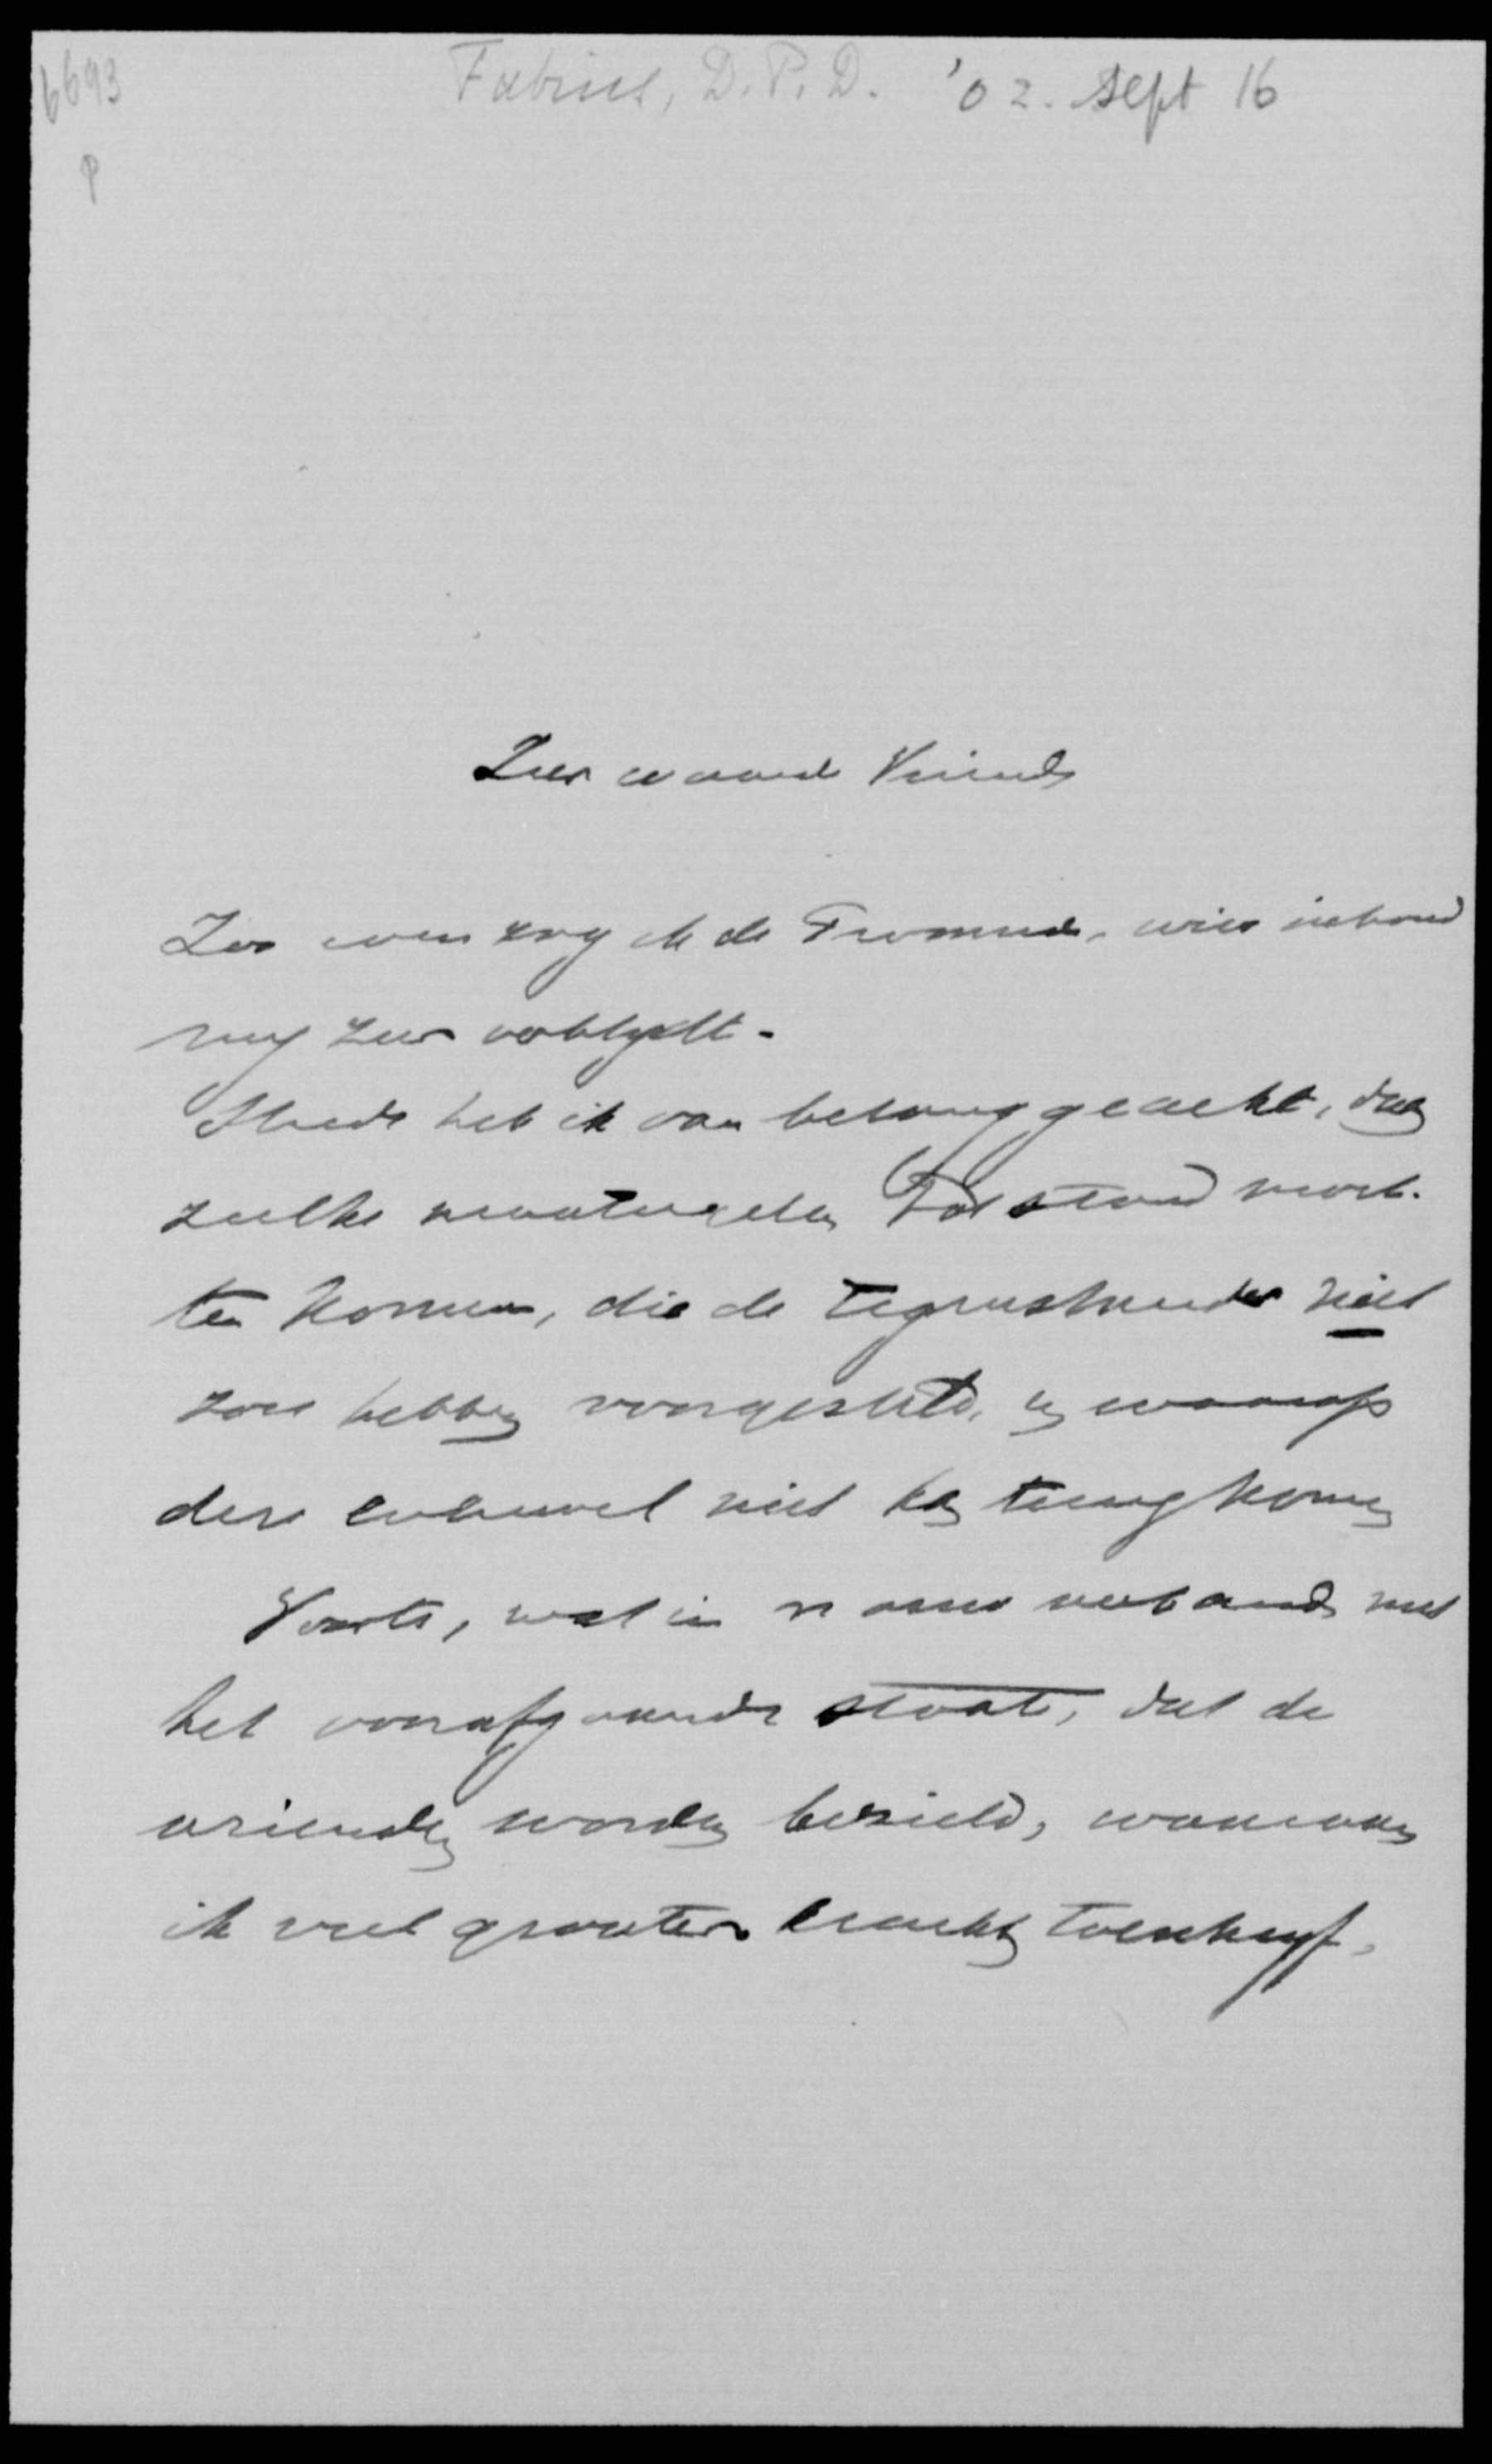 6693
P
Fabius, D.P.D. '02. Sept 16
Zeer waarde Vriend
Zoo even zag ik de Troonrede, wier inhoud
mij zeer verblijdt.
Steeds heb ik van belang geacht, dat
zulke maatregelen tot stand moch-
ten komen, die de tegenstander niet
zou hebben voorgesteld, en waarop
deze evenwel niet kan terugkomen
Voorts, wat in nauw verband met
het voorafgaande staat, dat de
vrienden worden bezield, waaraan
ik veel grooter kracht toeschrijf,